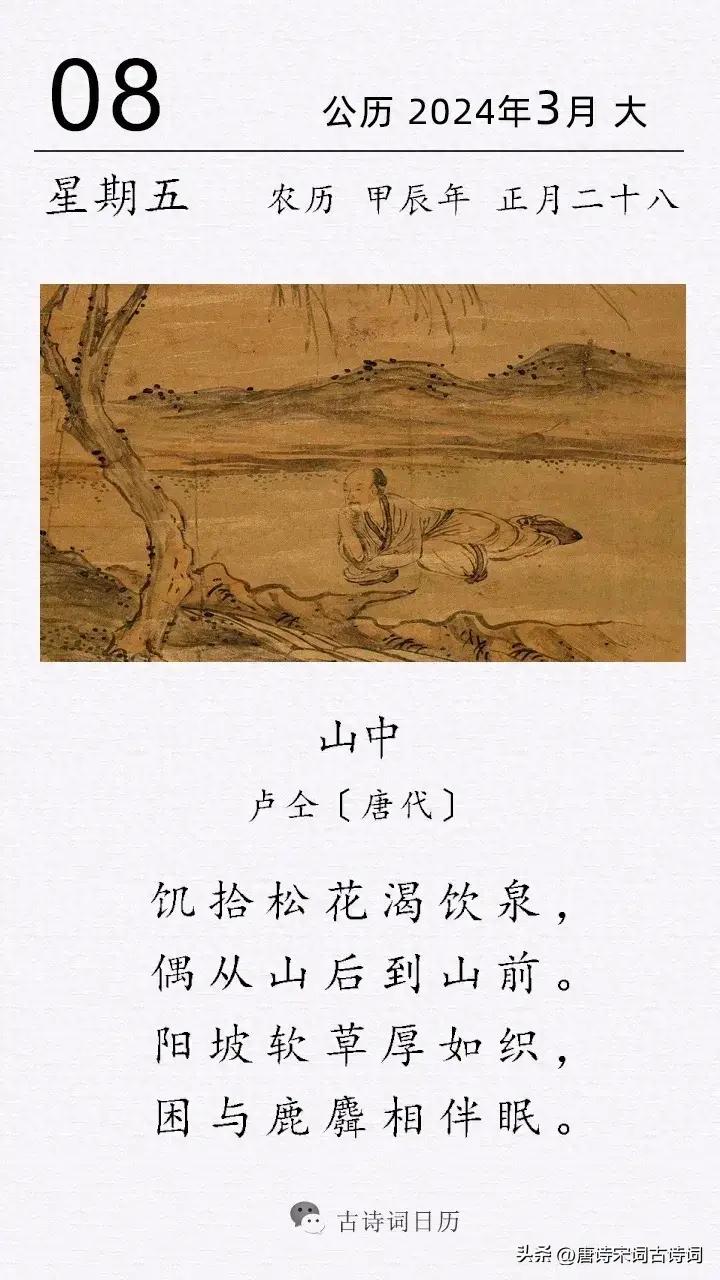 08 公历 2024年3月 大
星期五 农历 甲辰年 正月二十八
山中
卢仝〔唐代〕
饥拾松花渴饮泉，
偶从山后到山前。
阳坡软草厚如织，
困与鹿麛相伴眠。
古诗词日历
头条 @唐诗宋词古诗词